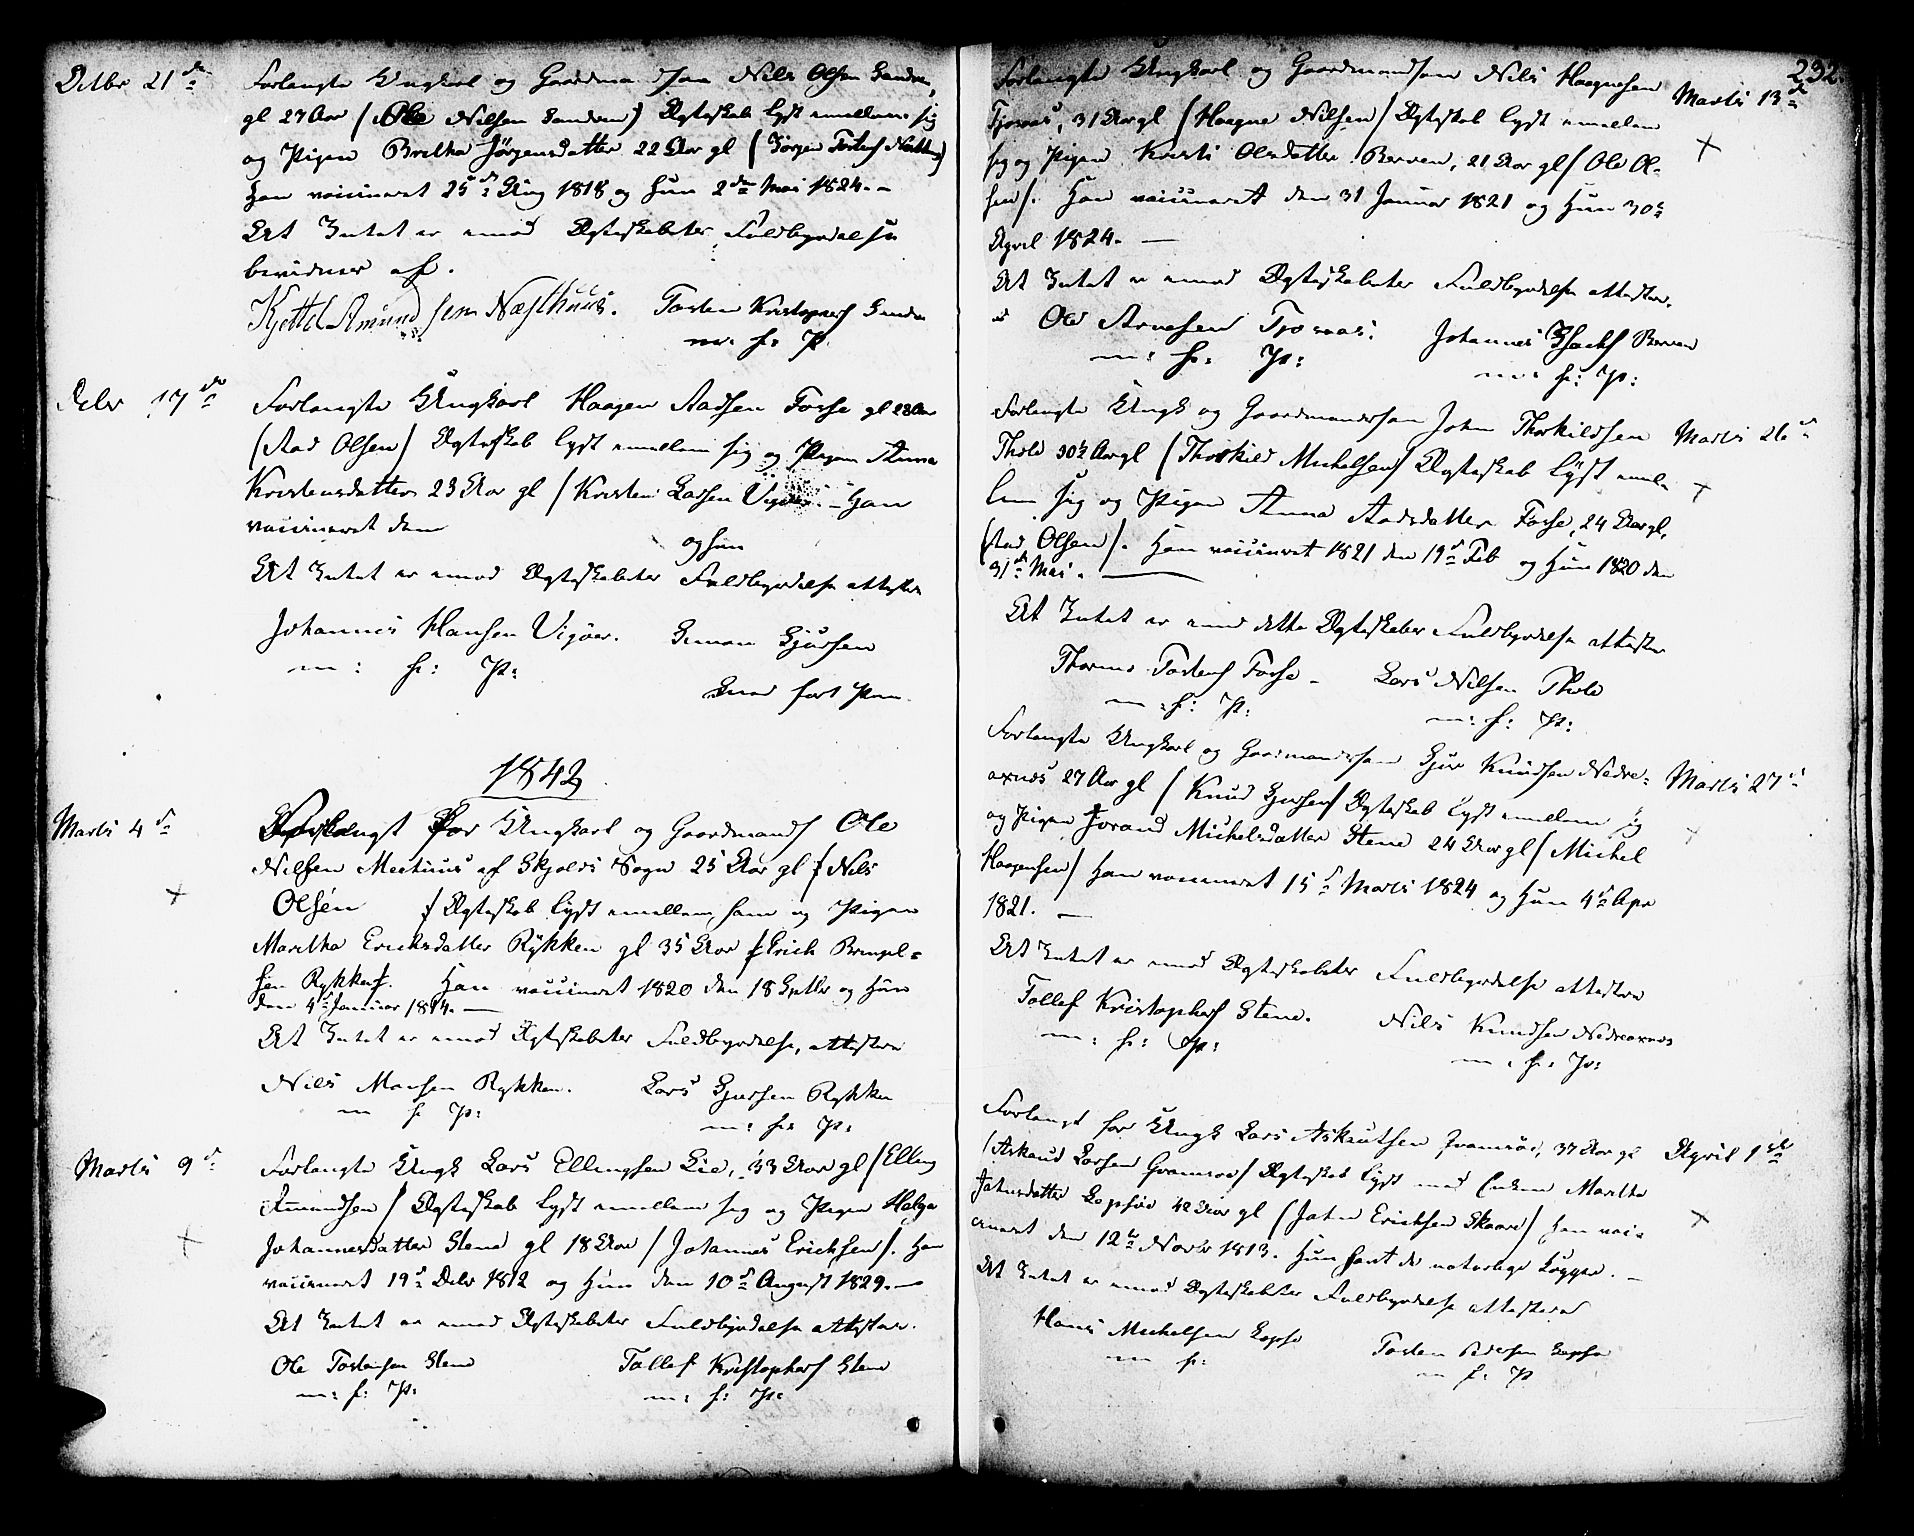 Octbr 21de
Forlangte Ungkarl og Gaardmandssøn Nils Olsen Sandven,
gl 27 Aar (Ole Nilsen Sandven) Ægteskab lyst emellem sig
og Pigen Britha Jørgensdatter 22 Aar gl (Jørgen Torstens
Han vaccineret 25de Aug 1818 og Hun 2den Mai 1824. –
At Intet er imod Ægteskabets Fuldbyrdelse
bevidner af.
Kjettel Amundsen Næsthuus. Torsten Kristophers Sandven
m: f: P.
Decbr 17de
Forlangte Ungkarl Haagen Aadsen Fosse gl 28 Aar
(Aad Olsen) Ægteskab lyst emellem sig og Pigen Anna
Kristensdatter 23 Aar gl (Kristen Larsen Vigøer. – Han
vaccineret den
og hun
At Intet er imod Ægteskabets Fuldbyrdelse attester
Johannes Hansen Vigøer. Simon Sjursen
m: f: P:
1842
Marts 4de
Forlangt For Ungkarl og Gaardmands Ole
Nilsen af Skjolds Sogn 25 Aar gl (Nils
Olsen ) Ægteskab lyst emellem ham og Pigen
Maritha Ericksdatter Rykken gl 35 Aar (Erick Bringel=
sen Rykken). Han vaccineret 1820 den 18 Septbr og Hun
den 4de Januar 1814. –
At Intet er imod Ægteskabets Fuldbyrdelse, attestere
Nils Monsen Rykken. Lars Sjursen Rykken
m f P: m: f: P:
Marts 9de
Forlangte Ungk Lars Ellingsen Lie, 33 Aar gl (Elling
Amundsen) Ægteskab lyst emellem sig og Pigen Helga
Johannesdatter Stene gl 18 Aar (Johannes Ericksen). Han
vaccineret 19de Decbr 1812 og Hun den 10de August 1829. –
At Intet er imod Ægteskabets Fuldbyrdelse attester.
Ole Torstensen Stene Tollef Kristophers Stene
m: f: P: m: f: P:
232.
Forlangte Ungkarl og Gaardmandssøn Nils Haagnesen
Marts 13de
Tjoraas, 31 Aar gl (Haagne Nilsen) Ægteskab lyst emellem
sig og Pigen Kristi Olsdatter Berven, 21 Aar gl (Ole Ol-
sen). Han vaccineret den 31 Januar 1821 og Hun 30de
April 1824. –
At Intet er imod Ægteskabets Fuldbyrdelse attester.
Ole Arnesen Tjoraas. Johannes Isacks Berven
m: f: P: m: f: P:
Forlangte Ungk og Gaardmandssøn John Thorkildsen
Marts 26de
Tholo 30½ Aar gl (Thorkild Michelsen) Ægteskab lyst emel-
lem sig og Pigen Anna Aadsdatter Fosse, 24 Aar gl,
(Aad Olsen). Han vaccineret 1821 den 19de Feb og Hun 1820 den
31de Mai. –
At Intet er imod dette Ægteskabs Fuldbyrdelse attester
Thormo Torstens Fosse – Lars Nilsen Tholo
m: f: P: m: f: P:
Forlangte Ungkarl og Gaardmandssøn Sjur Knudsen Nedre-
Marts 27de
axnæs 27 Aar gl (Knud Sjursen) Ægteskab lyst emellem sig
og Pigen Jorand Michelsdatter Stene 24 Aar gl (Michel
Haagensen) Han vaccineret 15de Marts 1824 og Hun 4de Apr
1821. –
At Intet er imod Ægteskabets Fuldbyrdelse attestere
Tollef Kristophers Stene. Nils Knudsen Nedreaxnæs
m: f: P: m: f: P:
Forlangt for Ungk Lars Askoutsen 37 Aar gl
April 1ste
(Askoud Larsen ) Ægteskab lyst med Enken Maritha
Johnsdatter 42 Aar gl (John Ericksen Skaare) Han vac-
cineret den 12te Novbr 1813. Hun havt de naturlige Kopper. –
At Intet er imod Ægteskabets Fuldbyrdelse attesterer
Hans Michelsen Torsten
m f: m f: P